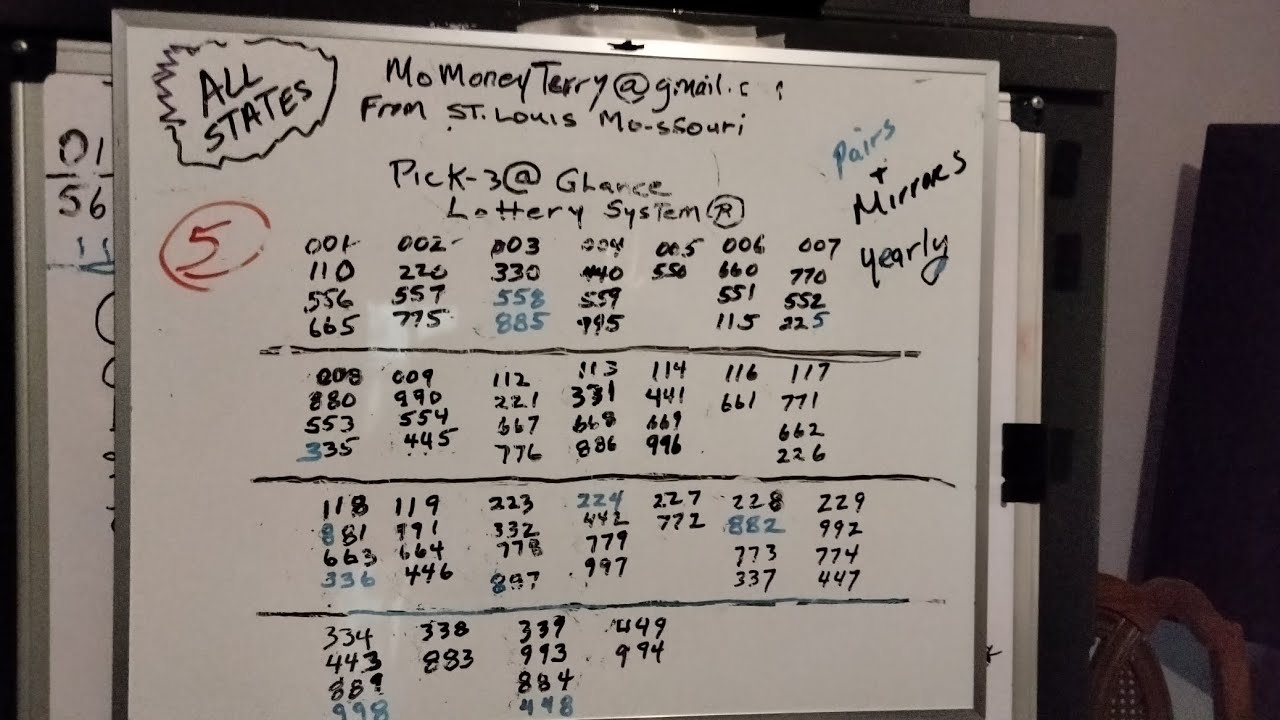 ALL
STATES
MoMoneyTerry@gmail.c
From ST. Louis Mo-ssouri
Pairs
+
Mirrors
yearly
Pick-3@ Glance
Lottery System ®
5
01
56
11
001 002 003 004 005 006 007
110 220 330 440 550 660 770
556 557 558 559 551 552
665 775 885 995 115 225
008 009 112 113 114 116 117
880 990 221 331 441 661 771
553 554 667 668 669 662
335 445 776 886 996 226
118 119 223 224 227 228 229
881 991 332 442 772 882 992
663 664 778 779 773 774
336 446 887 997 337 447
334 338 339 449
443 883 993 994
889 884
998 448